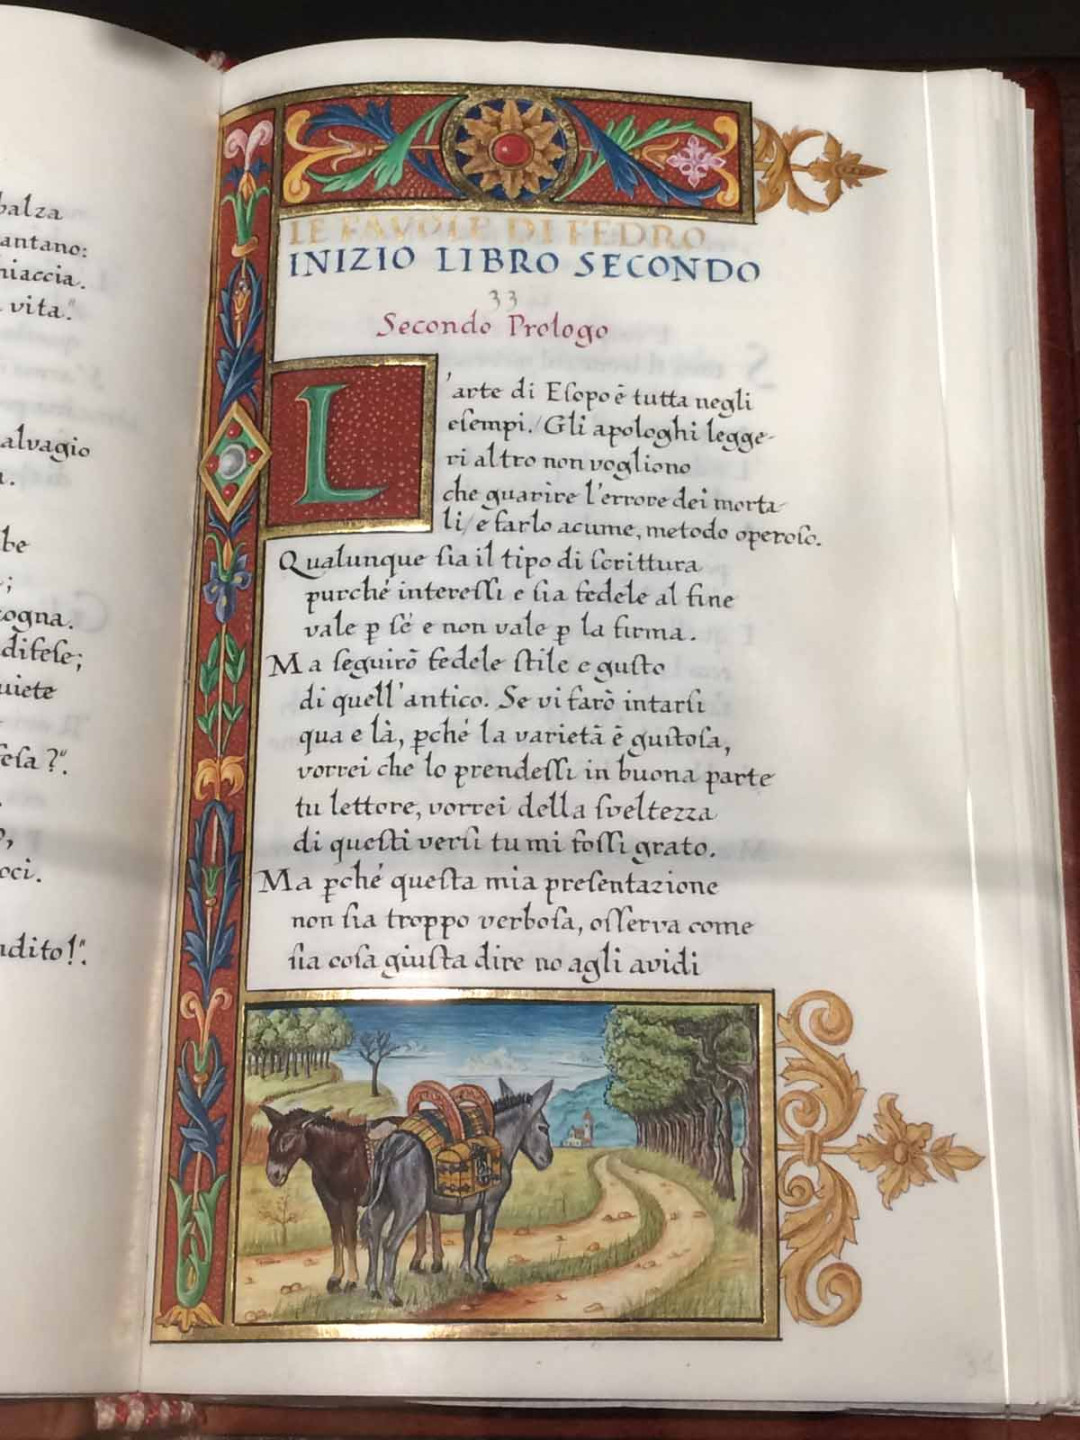 balza
antano:
hiaccia.
vita".
alvagio
be
;
cogna.
difeſe;
uiete
eſa?".
oci.
ndito!".
LE FAVOLE DI FEDRO
INIZIO LIBRO SECONDO
33
Secondo Prologo
L'arte di Eſopo è tutta negli
eſempi. Gli apologhi legge-
ri altro non vogliono
che guarire l'errore dei morta-
li, e farlo acume, metodo operoſo.
Qualunque ſia il tipo di ſcrittura
purché intereſſi e ſia fedele al fine
vale ꝑ ſé e non vale ꝑ la firma.
Ma ſeguirò fedele ſtile e guſto
di quell'antico. Se vi farò intarſi
qua e là, ꝑché la varietà è guſtoſa,
vorrei che lo prendeſſi in buona parte
tu lettore, vorrei della ſveltezza
di queſti verſi tu mi foſſi grato.
Ma ꝑché queſta mia preſentazione
non ſia troppo verboſa, oſſerva come
ſia coſa giuſta dire no agli avidi